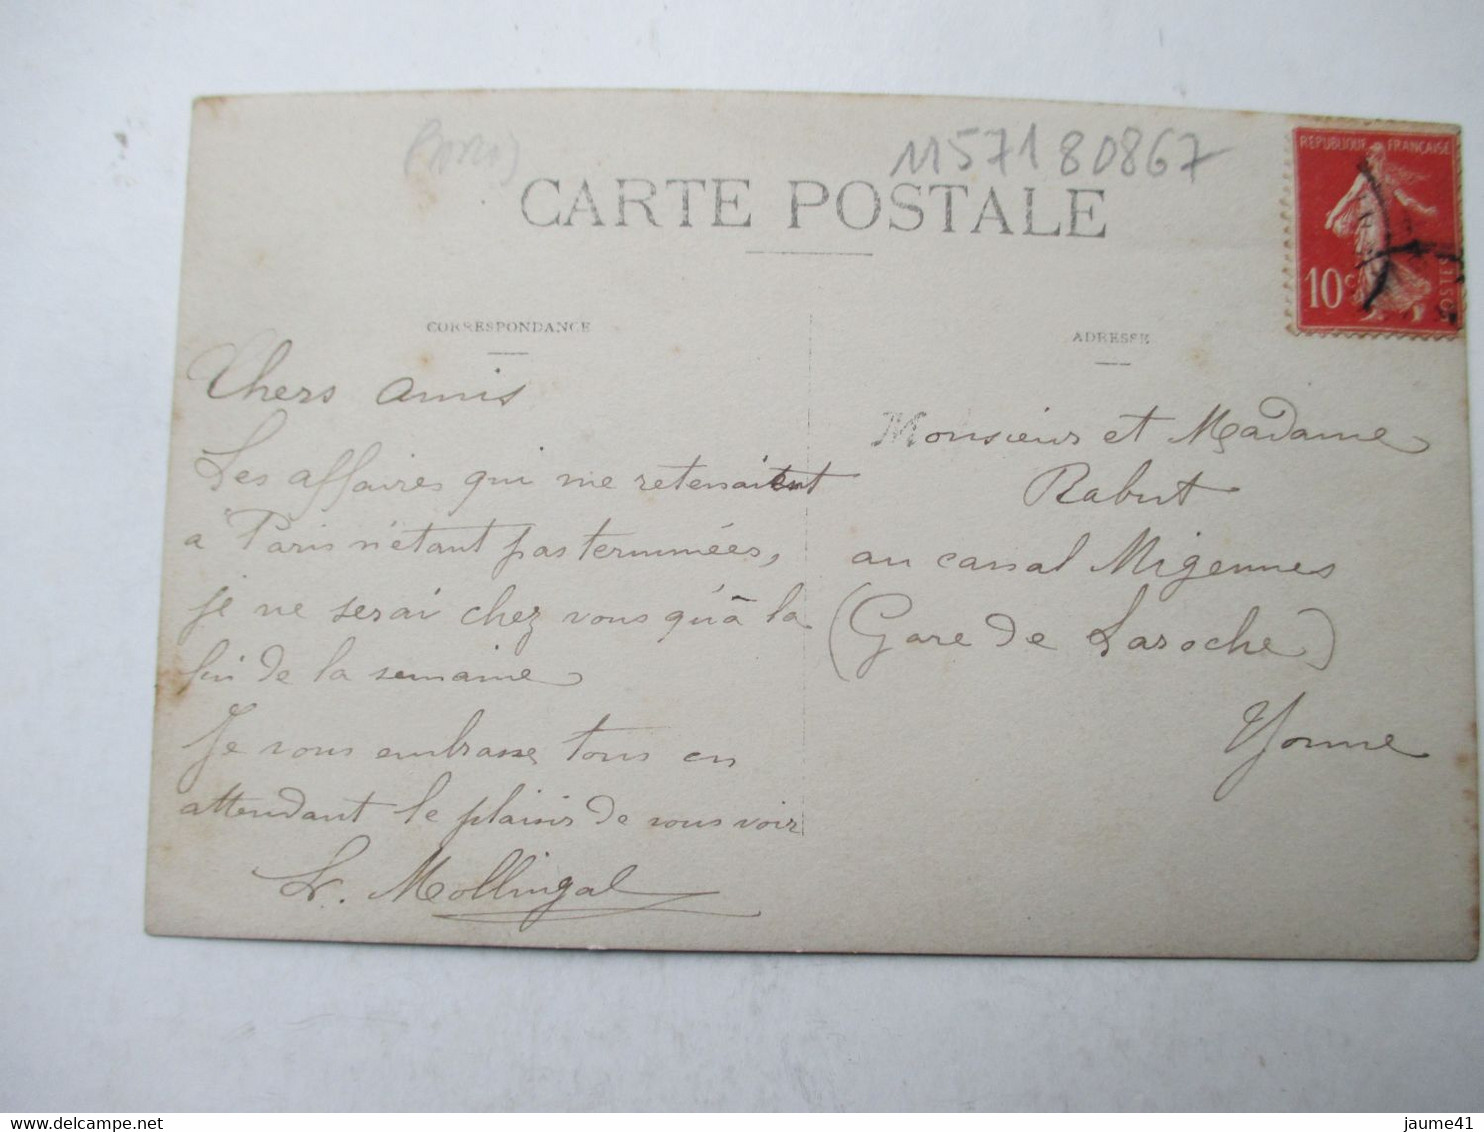 11571 80867
CARTE POSTALE
REPUBLIQUE FRANÇAISE
10c
POSTES
CORRESPONDANCE
ADRESSE
Chers amis
Les affaires qui me retenaient
a Paris n'étant pas terminées,
je ne serai chez vous qu'à la
fin de la semaine
Je vous embrasse tous en
attendant le plaisir de vous voir
Mollingal
Monsieur et Madame
Rabut
au canal Migennes
(Gare de Laroche)
Yonne
delcampe.net
jaume41